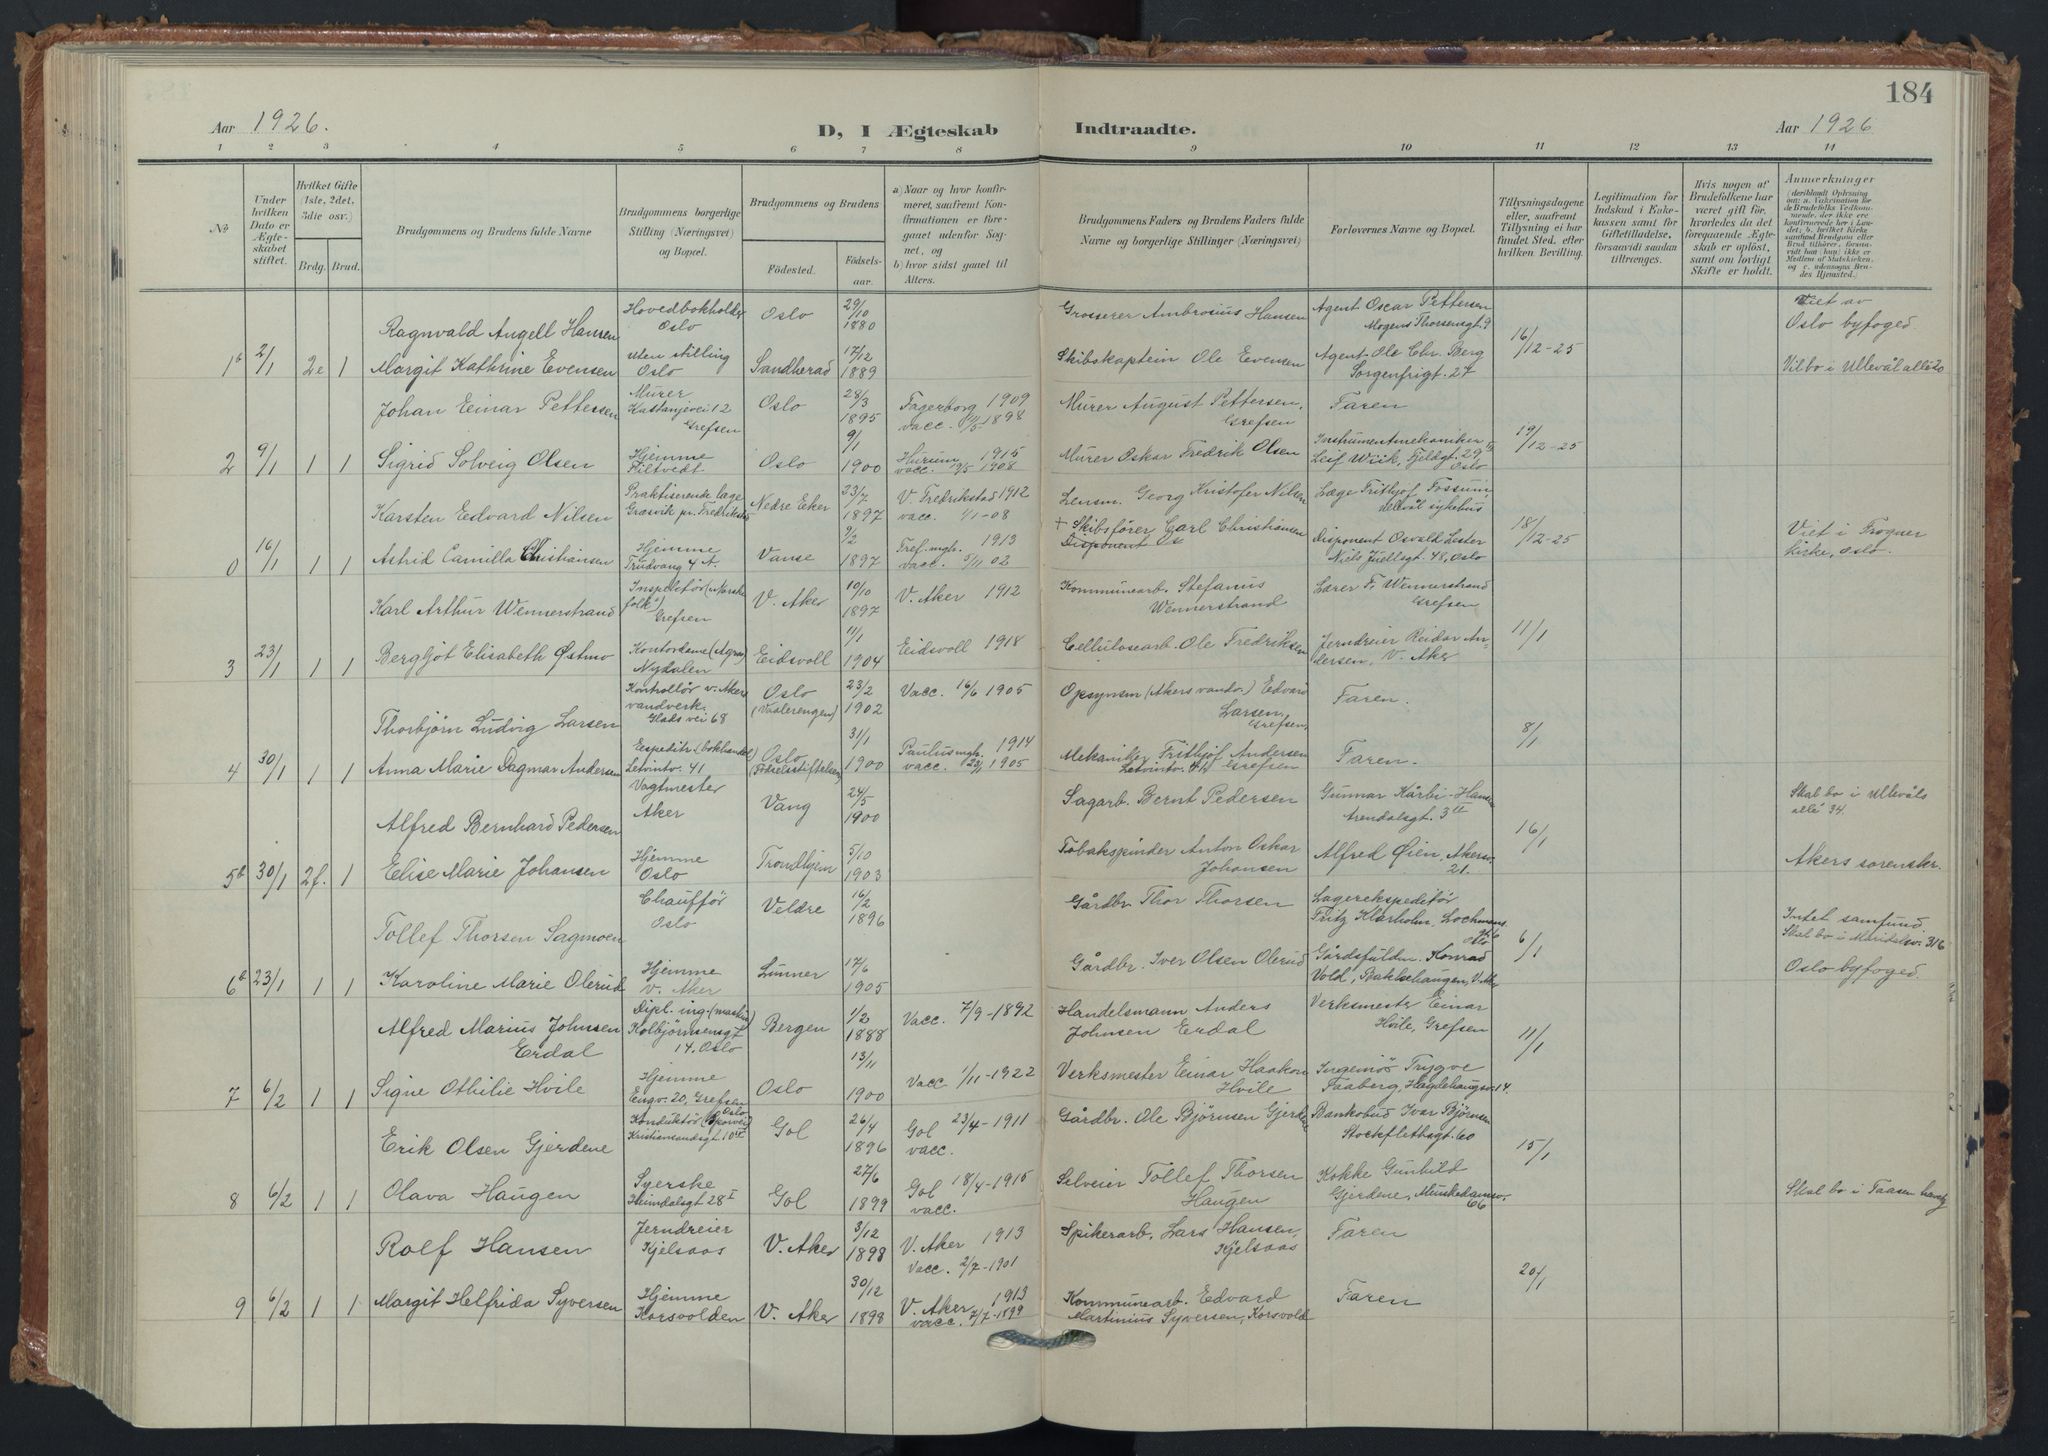 184
Aar 1926.
D, I Ægteskab
Indtraadte.
Aar 1926
1 2 3 4 5 6 7 8 9 10 11 12 13 14
No
Under hvilken Dato er Ægteskabet stiftet.
Hvilket Gifte (1ste, 2det, 3die osv.)
Brdg. Brud.
Brudgommens og Brudens fulde Navne
Brudgommens borgerlige Stilling (Næringsvei) og Bopæl.
Brudgommens og Brudens
Fødested.
Fødselsaar.
a) Naar og hvor konfirmeret, saafremt Konfirmationen er foregaaet udenfor Sognet, og
b) hvor sidst gaaet til Alters.
Brudgommens Faders og Brudens Faders fulde Navne og borgerlige Stillinger (Næringsvei)
Forlovernes Navne og Bopæl.
Tillysningsdagene eller, saafremt Tillysning ei har fundet Sted, efter hvilken Bevilling.
Legitimation for Indskud i Enkekassen samt for Giftetilladelse, forsaavidt saadan tiltrænges.
Hvis nogen af Brudefolkene har været gift før, hvorledes da det foregaaende Ægteskab er opløst, samt om lovligt Skifte er holdt.
Anmærkninger
(deriblandt Oplysning om: a. Vakcination for de Brudefolks Vedkommende, der ikke ere konfirmerede her i Landet; b. hvilket Kirkesamfund Brudgom eller Brud tilhører, forsaavidt han (hun) ikke er Medlem af Statskirken, og c. udensogns Brudes Hjemsted.)
Ragnvald Angell Hansen Hovedbokholder Oslo Oslo 29/10 1880 Grosserer Ambrosius Hansen Agent Oscar Pettersen Mogens Thorsensgt. 9 Viet av Oslo byfoged
1b 2/1 2e 1 Margit Kathrine Evensen Uten stilling Oslo Sandherad 17/12 1889 Skibskaptein Ole Evensen Agent Ole Chr. Berg Sorgenfrigt. 27 16/12-25 Vil bo i Ullevål allé 20
Johan Einar Pettersen Murer Kastanjevei 12 Grefsen Oslo 28/3 1895 Fagerborg 1909 vacc. 1898 Murer August Pettersen, Grefsen Faren
2 9/1 1 1 Sigrid Solveig Olsen Hjemme Filtvedt Oslo 9/1 1900 Hurum 1915 vacc. 19/5 1908 Murer Oskar Fredrik Olsen Instrumentmekaniker Leif Wiik, Fjeldgt. 29 II Oslo 19/12-25
Karsten Edvard Nilsen Praktiserende læge Græsvik pr. Fredrikstad Nedre Eiker 23/7 1897 V. Fredrikstad 1912 vacc. 1/1-08 Lensm. Georg Kristofer Nilsen Læge Frithjof Fossum, Ullevål sykehus
0 16/1 1 1 Astrid Camilla Christiansen Hjemme Trudvang 4 A. Vanse 9/2 1897 Tref. mgh. 1913 vacc. 5/11 02 + Skibsfører Carl Christiansen Disponent Osvald Lester Niels Juelsgt. 48, Oslo 18/12-25 Viet i Frogner kirke, Oslo.
Karl Arthur Wennerstrand Inspektør (Norske folk) Grefsen V. Aker 10/10 1897 V. Aker 1912 Kommunearb. Stefanus Wennerstrand Lærer Fr. Wennerstrand Grefsen
3 23/1 1 1 Bergljot Elisabeth Østmo Kontordame (Agra) Nydalen Eidsvoll 11/1 1904 Eidsvoll 1918 Cellulosearb. Ole Fredriksen Jerndreier Reidar Andersen, V. Aker 11/1
Thorbjørn Ludvig Larsen Kontrollør v. Akers vandverk. Glads vei 68 Oslo (Vaalerengen) 23/2 1902 Vacc. 16/6 1905 Opsynsm (Akers vandv.) Edvard Larsen, Grefsen, Faren.
4 30/1 1 1 Anna Marie Dagmar Andersen Expeditr. (bokhandel) Letvintv. 41 Oslo (Fødselsstiftelsen) 31/1 1900 Paulus mgh. 1914 vacc. 23/1 1905 Mekaniker Frithjof Andersen Letvintv. 41, Grefsen Faren. 8/1
Alfred Bernhard Pedersen Vagtmester Aker Vang 24/5 1900 Sagarb. Bernt Pedersen Gunnar Kårbi-Hansen Arendalsgt. 3 II Skal bo i Ullevåls allé 34.
5b 30/1 2f. 1 Elise Marie Johansen Hjemme Oslo Trondhjem 5/10 1903 Tobakspinder Anton Oskar Johansen Alfred Øien, Akersv. 21. 16/1 Akers sorenskr.
Tollef Thorsen Sagmoen Chauffør Oslo Veldre 16/2 1896 Gårdbr. Thor Thorsen Lagerekspeditør Fritz Klarholm, Lochmans gt. 6 Oslo Intet samfund. Skal bo i Maridalsv. 316
6b 23/1 1 1 Karoline Marie Olerud Hjemme V. Aker Lunner 17/6 1905 Gårdbr. Iver Olsen Olerud Gårdsfuldm. Konrad Vold, Bakkehaugen, V. Aker 6/1 Oslo byfoged.
Alfred Marius Johnsen Erdal Dipl. ing. (maskin) Kolbjørnsensgt 14. Oslo Bergen 1/2 1888 Vacc. 7/9-1892 Handelsmann Anders Johnsen Erdal Verksmester Einar Hvile, Grefsen
7 6/2 1 1 Signe Othilie Hvile Hjemme Engv. 20, Grefsen Oslo 13/11 1900 Vacc. 1/11-1922 Verksmester Einar Haakon Hvile Ingeniør Trygve Faaberg, Hagl­ehaugsv. 14. 11/1
Erik Olsen Gjerdene Konduktør (Sporvei) Oslo Kristiansandsgt 10 II Gol 26/4 1896 Gol 23/4-1911 vacc. Gårdbr. Ole Bjørnsen Gjerdene Bankobud Ivar Bjørnsen Stockflethsgt. 60
8 6/2 1 1 Olava Haugen Syerske Heimdalsgt 28 I Gol 27/6 1899 Gol 18/4-1915 vacc. Selveier Tollef Thorsen Haugen Kokke Gunhild Gjerdene, Munkedamsv. 66 15/1 Skal bo i Taasen haveby
Rolf Hansen Jerndreier Kjelsaas V. Aker 3/12 1898 V. Aker 1913 Vacc. 2/7-1901 Spikerarb. Lars Hansen, Kjelsaas Faren
9 6/2 1 1 Margit Helfrida Syversen Hjemme Korsvolden V. Aker 30/12 1898 V. Aker 1913 vacc. 7/7-1899 Kommunearb. Edvard Martinius Syversen, Korsvold Faren 20/1